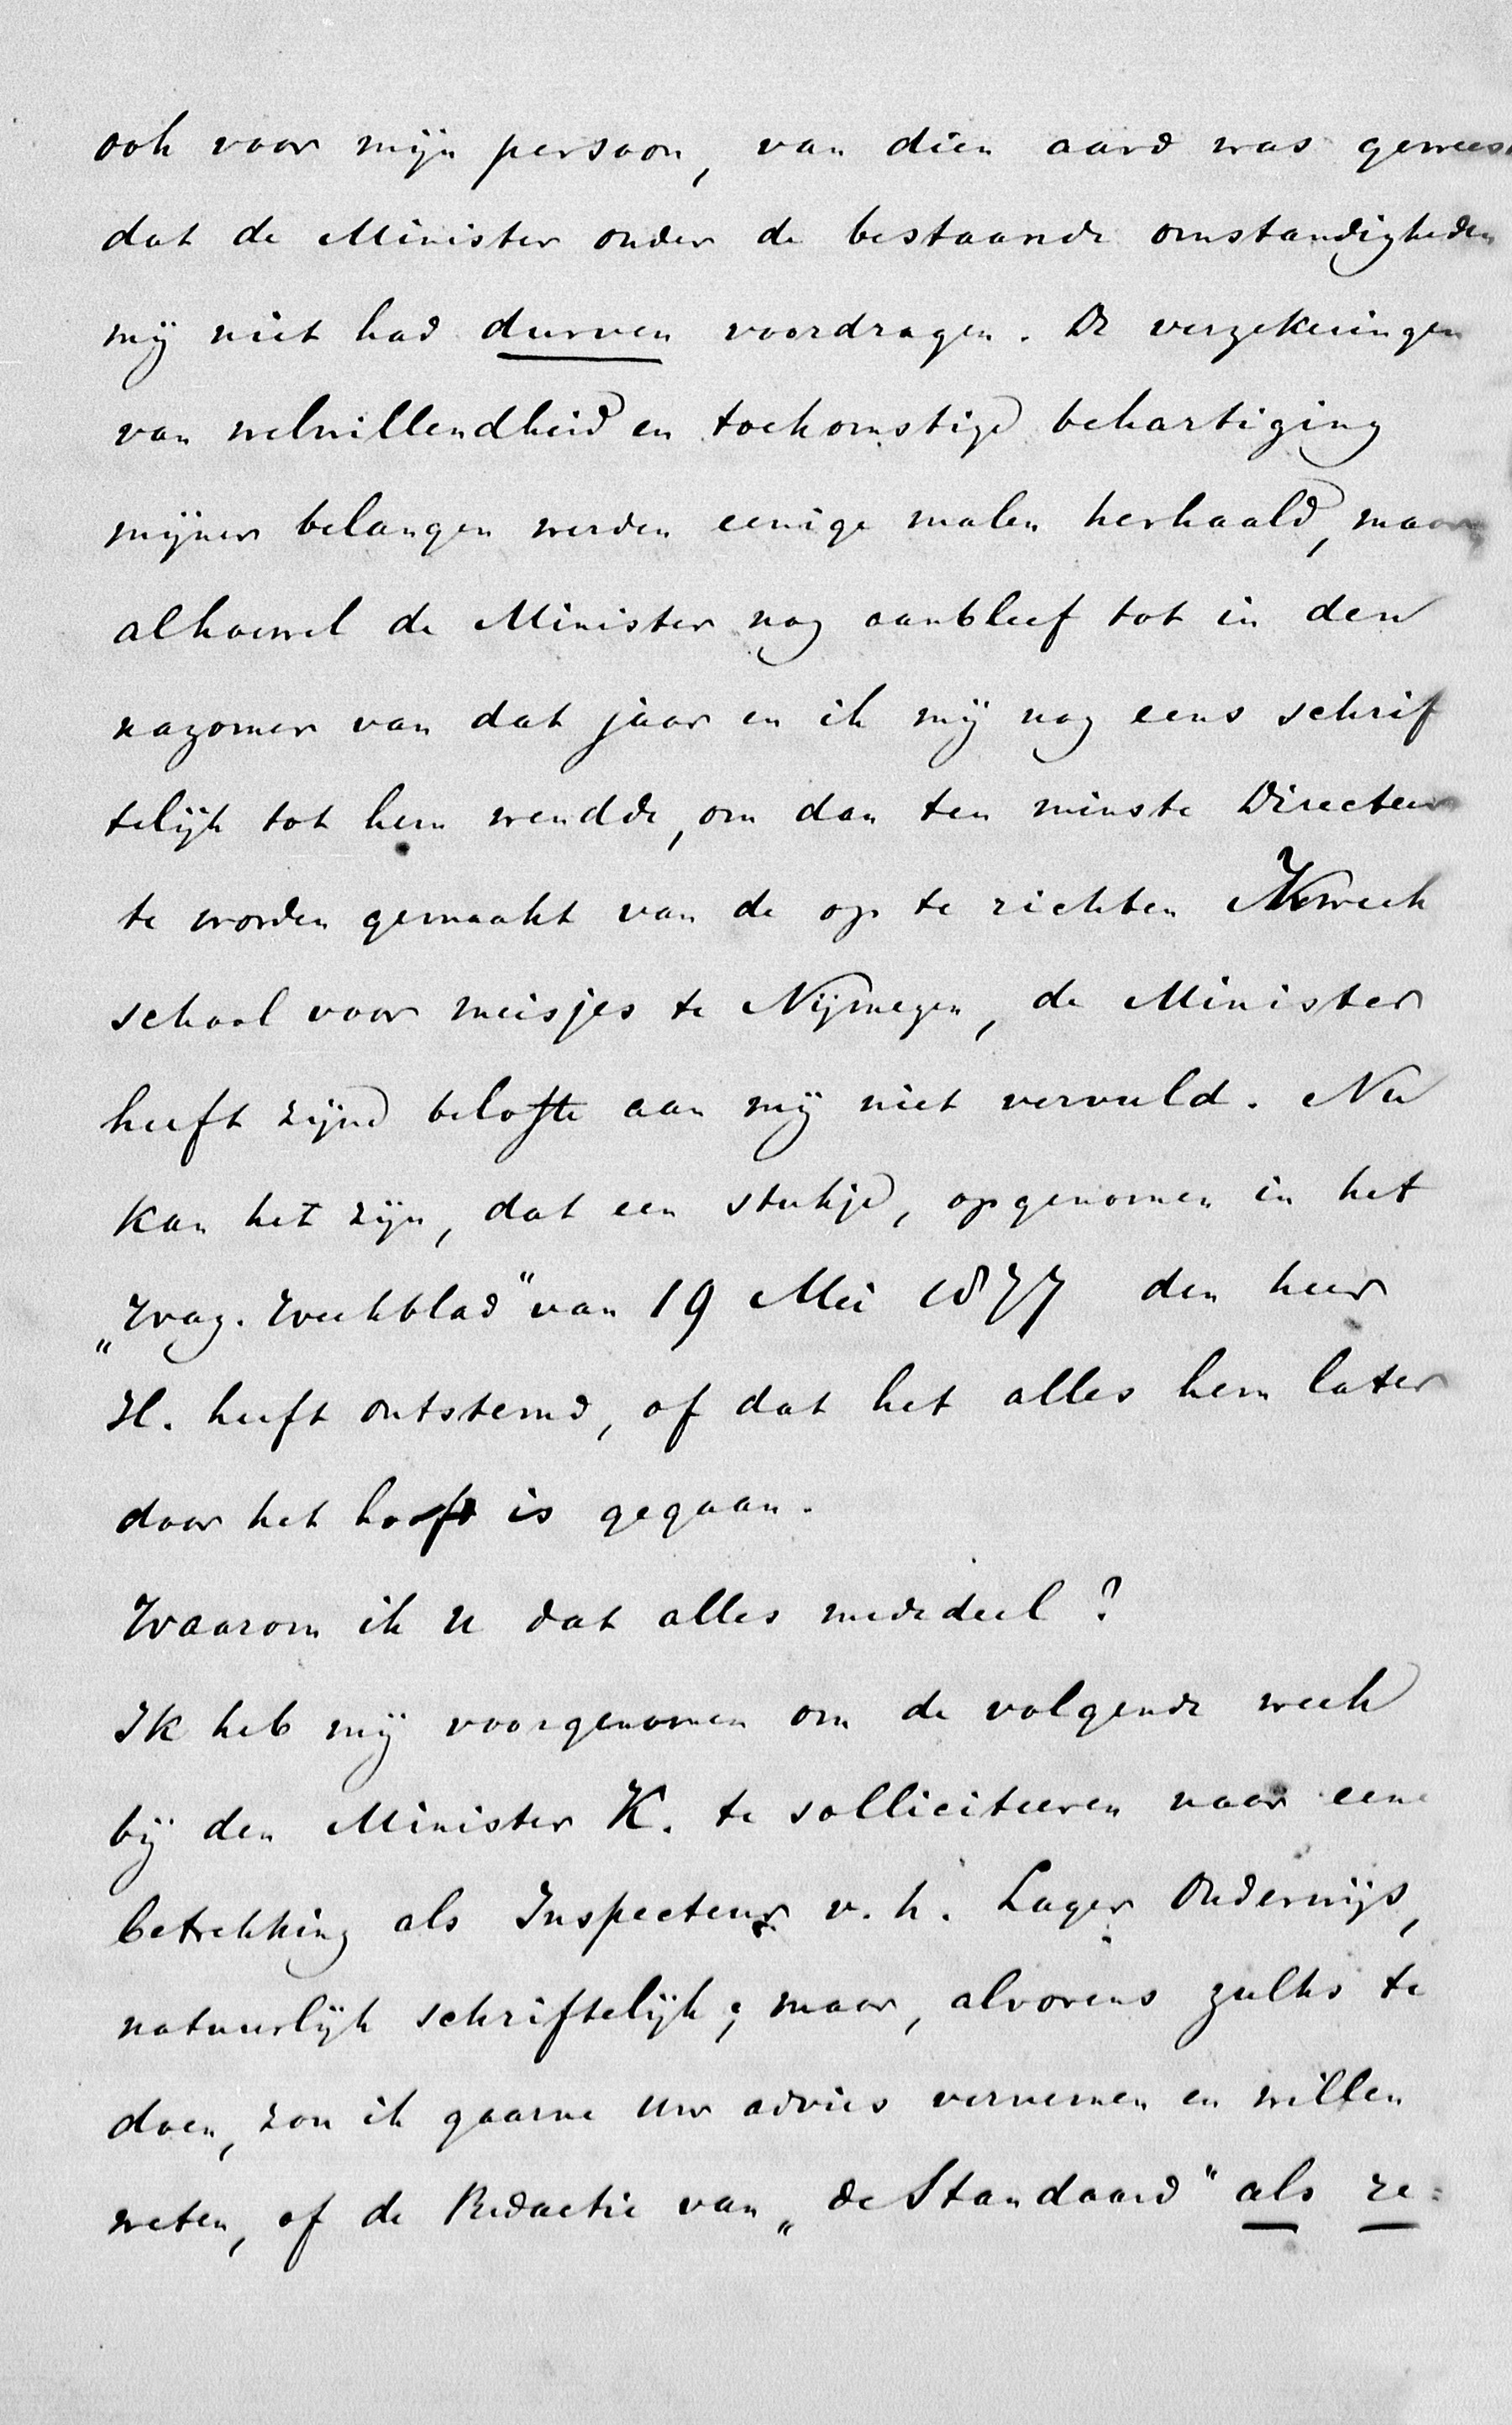 ook voor mijn persoon, van dien aard was geweest
dat de Minister onder de bestaande omstandigheden
mij niet had durven voordragen. De verzekeringen
van welwillendheid en toekomstige behartiging
mijner belangen werden eenige malen herhaald, maar
alhoewel de Minister nog aanbleef tot in den
nazomer van dat jaar en ik mij nog eens schrif
telijk tot hem wendde, om dan ten minste Directeur
te worden gemaakt van de op te richten Kweek
school voor meisjes te Nijmegen, de Minister
heeft zijne belofte aan mij niet vervuld. Nu
kan het zijn, dat een stukje, opgenomen in het
„Wag. Weekblad" van 19 Mei 1877 den heer
H. heeft ontstemd, of dat het alles hem later
door het hooft is gegaan.
Waarom ik U dat alles mededeel?
Ik heb mij voorgenomen om de volgende week
bij den Minister K. te solliciteeren naar eene
betrekking als Inspecteur v. h. Lager Onderwijs,
natuurlijk schriftelijk; maar, alvorens zulks te
doen, zou ik gaarne Uw advies vernemen en willen
weten, of de Redactie van „de Standaard" als ze=